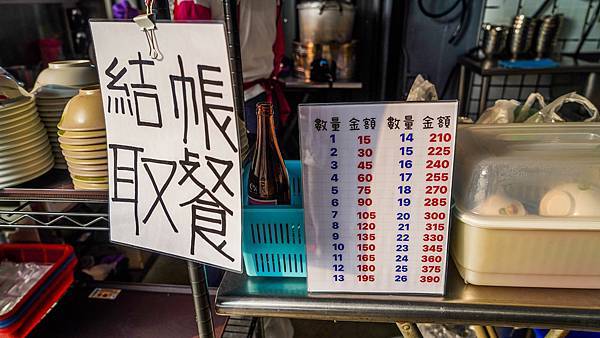 結帳
取餐
數量 金額 數量 金額
1 15 14 210
2 30 15 225
3 45 16 240
4 60 17 255
5 75 18 270
6 90 19 285
7 105 20 300
8 120 21 315
9 135 22 330
10 150 23 345
11 165 24 360
12 180 25 375
13 195 26 390